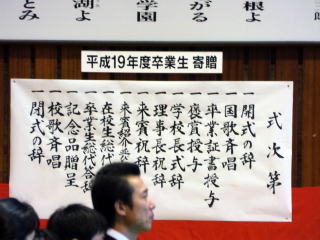 根よ
がる
学園
湖よ
とみ
平成19年度卒業生 寄贈
式次第
一開式の辞
一国歌斉唱
一卒業証書授与
一褒賞授与
一学校長式辞
一理事長祝辞
一来賓祝辞
一来賓紹介
一在校生総代
一卒業生総代答辞
一記念品贈呈
一校歌斉唱
一閉式の辞